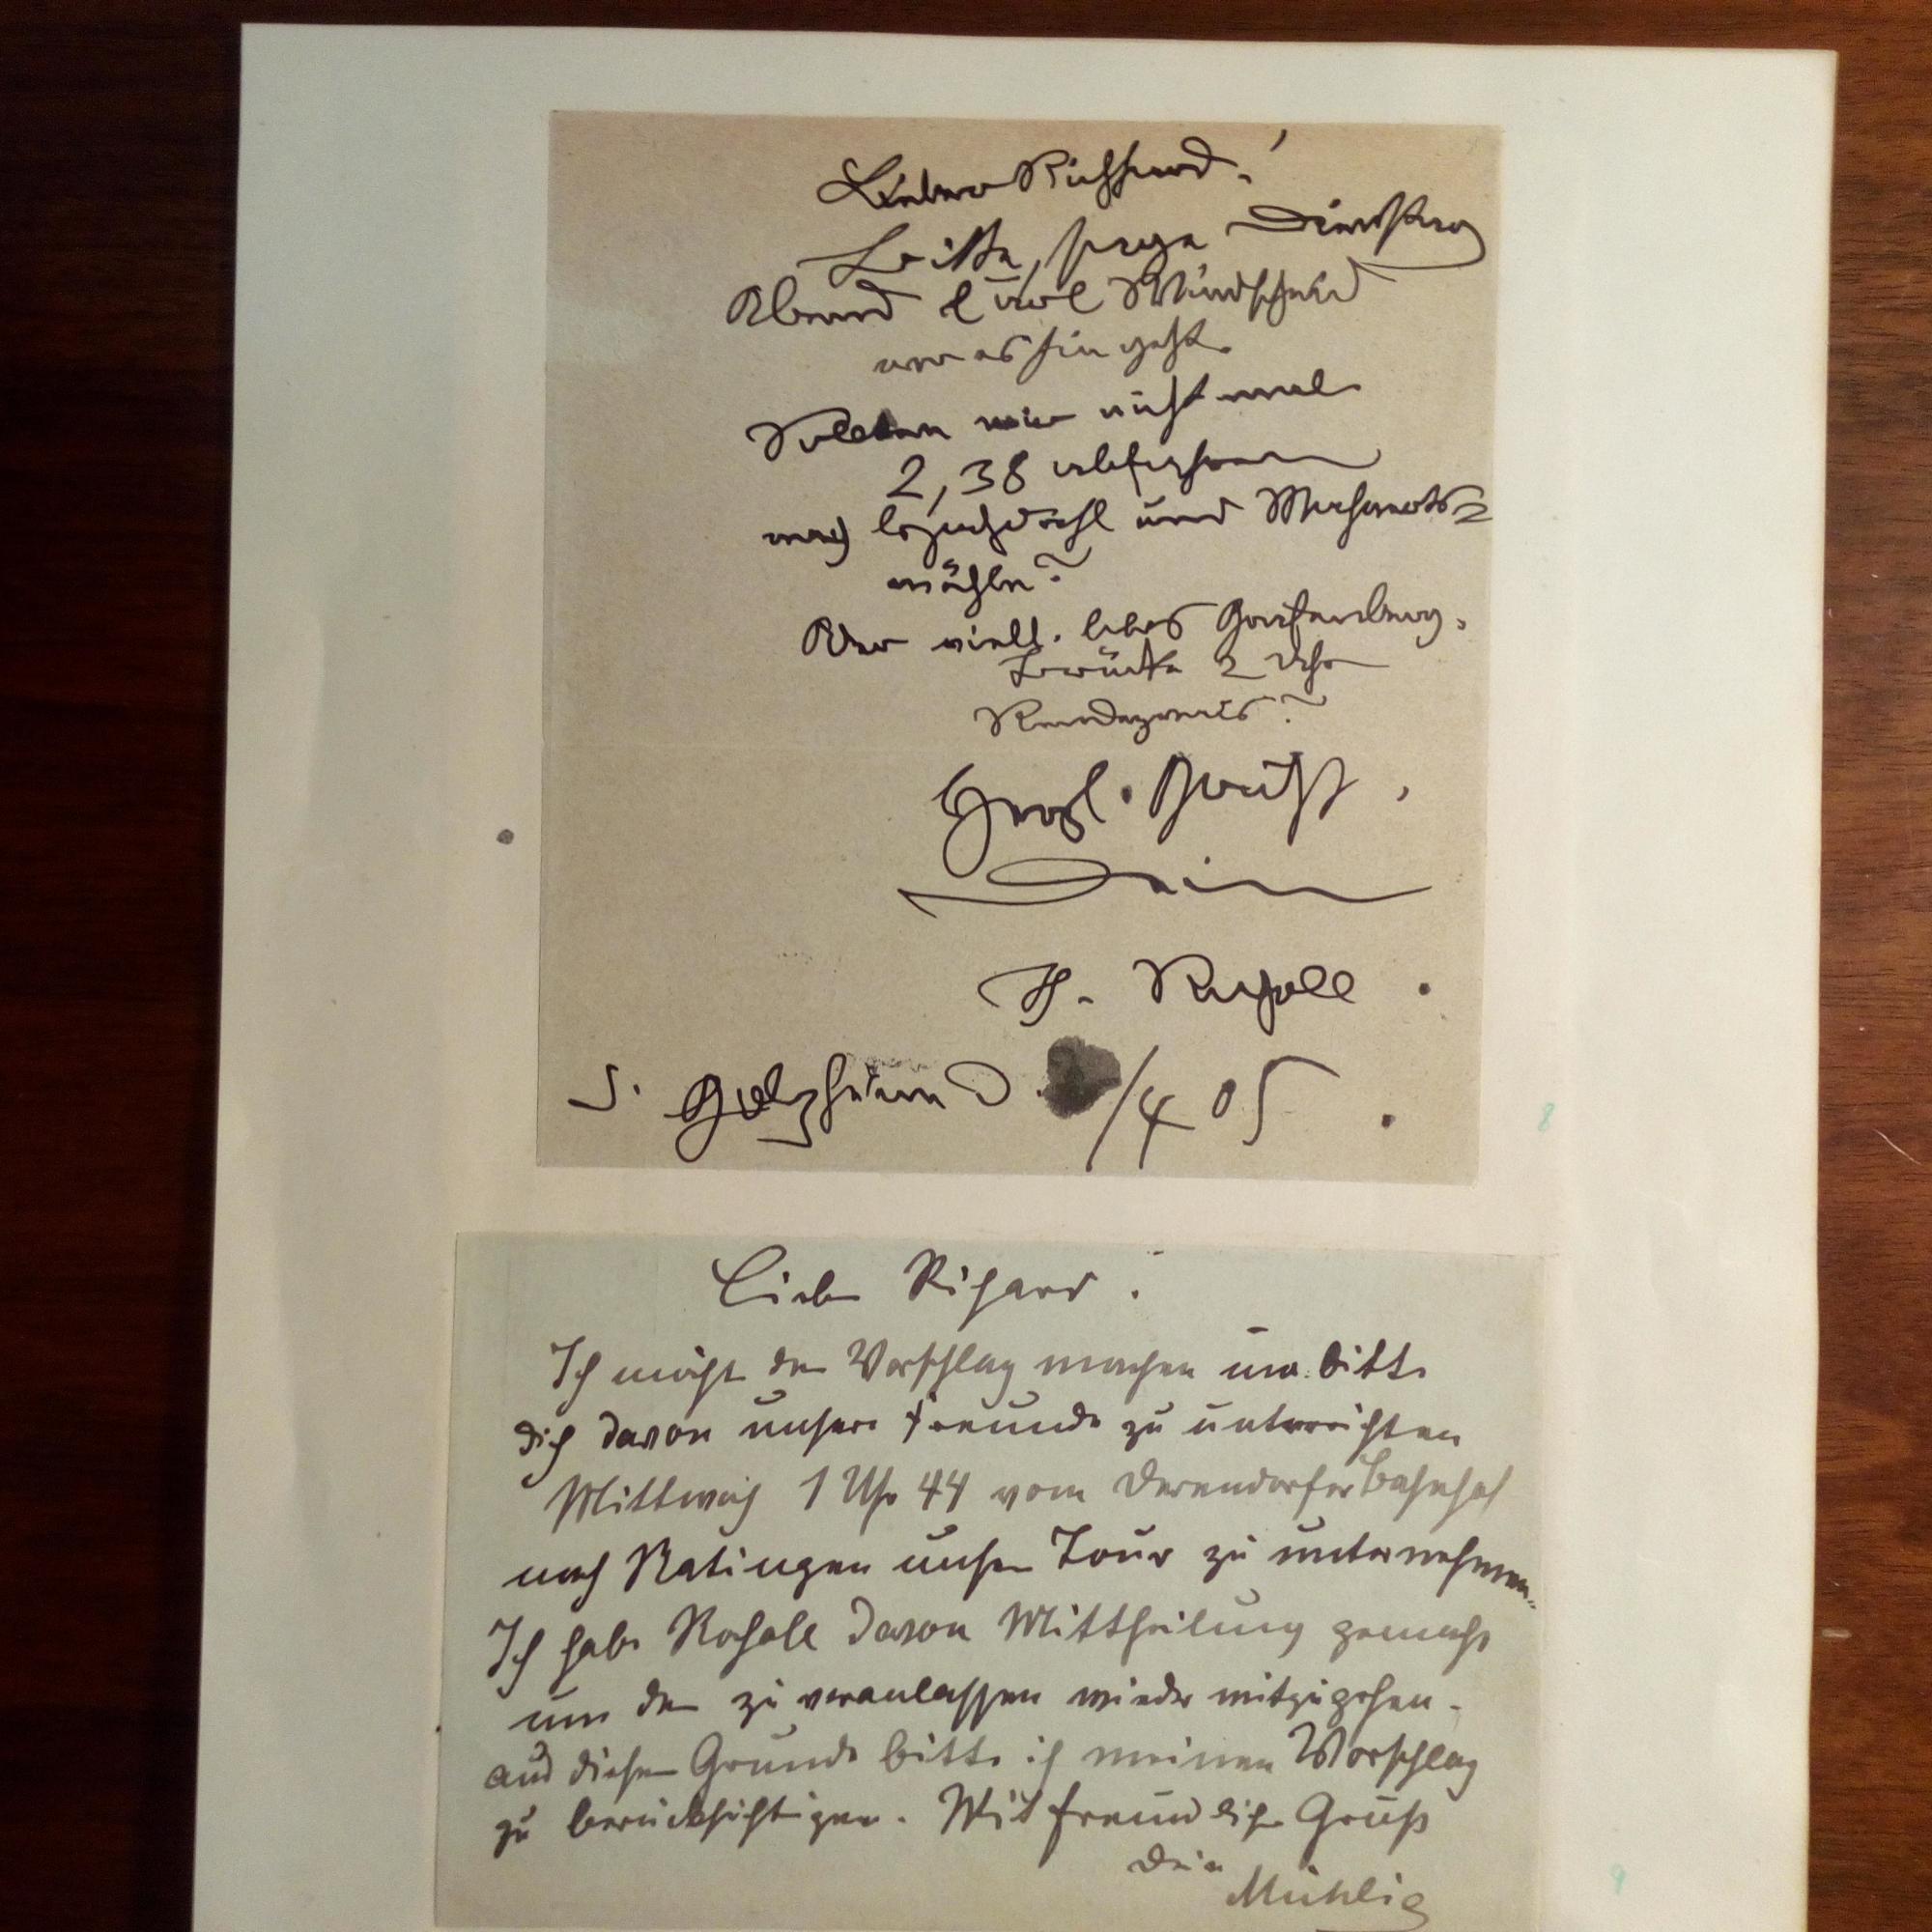 Lieber Richard!
Bitte, sage Dienstag
Abend Carl Windscheid
wo es hin geht.
Sollten wir nicht mal
2,38 abfahren
nach und
mühle?
Oder viell. Grafenberg.
Brücke 2 Uhr
Rendezvous?
Herzl. Gruß,
Dein
H. Rocholl.
S. Golzheim D. /4 05
8
Lieber Richard!
Ich möcht den Vorschlag machen und bitte
dich davon unsere Freunde zu unterrichten
Mittwoch 1 Uhr 44 vom Derendorfer Bahnhof
nach Ratingen unsere Tour zu unternehmen.
Ich habe Rocholl davon Mittheilung gemacht
um den zu veranlassen wieder mitzugehen.
Aus diesem Grunde bitte ich meinen Vorschlag
zu berücksichtigen. Mit freundlichem Gruß
Dein
Mühlig
9